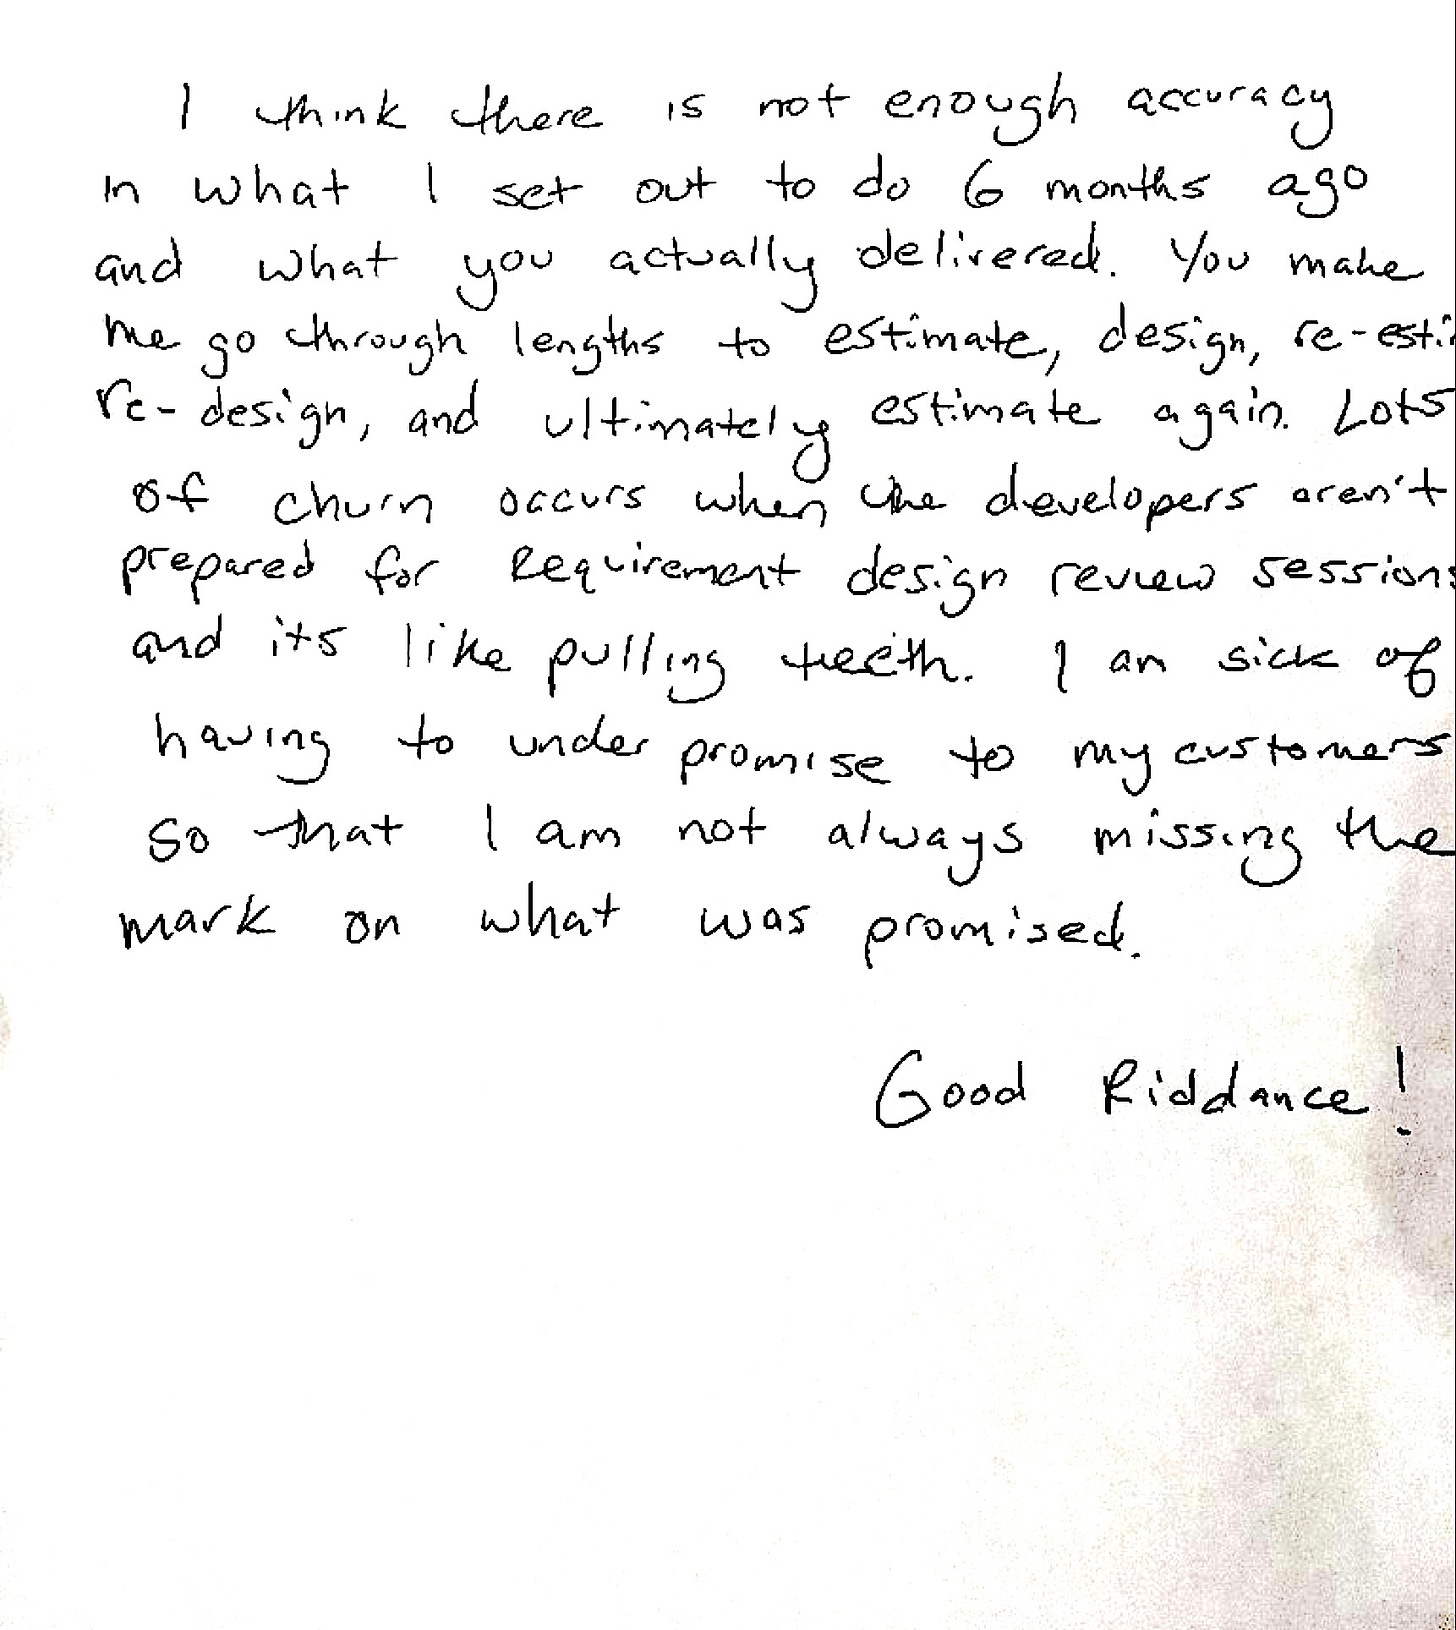 I think there is not enough accuracy
in what I set out to do 6 months ago
and what you actually delivered. You make
me go through lengths to estimate, design, re-esti
re-design, and ultimately estimate again. Lots
of churn occurs when the developers aren't
prepared for Requirement design review sessions
and its like pulling teeth. I am sick of
having to under promise to my customers
so that I am not always missing the
mark on what was promised.
Good Riddance!